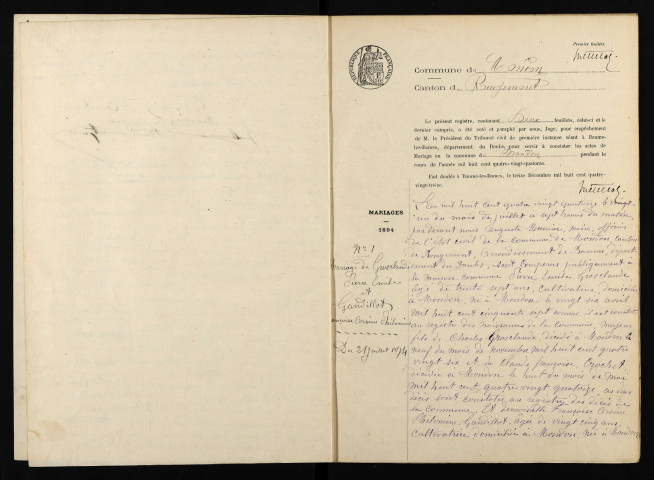 Premier feuillet
Commune de Mondon
Canton de Rougemont
Le présent registre, contenant Deux feuillets, celui-ci et le
dernier compris, a été coté et paraphé par nous, Juge, pour empêchement
de M. le Président du Tribunal civil de première instance séant à Baume-
les-Dames, département du Doubs, pour servir à constater les actes de
Mariage en la commune de Mondon pendant le
cours de l'année mil huit cent quatre-vingt-quatorze.
Fait double à Baume-les-Dames, le treize Décembre mil huit cent quatre-
vingt-treize.
MARIAGES
1894
N° 1
Mariage de Grosclaude
Pierre Emile
et
Gaudillot
Françoise Corinne Philomène
Du 21 juillet 1894
L'an mil huit cent quatre vingt quatorze le vingt
un du mois de juillet à sept heures du matin,
par devant nous Auguste maire, officier
de l'état civil de la commune de Mondon, canton
de Rougemont, arrondissement de Baume, départe
ment du Doubs, sont comparus publiquement à
la maison commune Pierre Emile Grosclaude
âgé de trente sept ans, cultivateur, domicilié
à Mondon, né à Mondon le vingt six avril
mil huit cent cinquante sept comme il est constaté
au registre des naissances de la commune, majeur
fils de Charles Grosclaude, décédé à Mondon le
neuf du mois de novembre mil huit cent quatre
vingt six et de Claude françoise
décédée à Mondon le huit du mois de mai
mil huit cent quatre vingt quatorze,
décès sont constatés au registre des décès de
la commune. Et demoiselle Françoise Corinne
Philomène Gaudillot, âgée de vingt cinq ans,
cultivatrice, domiciliée à Mondon, née à Mondon